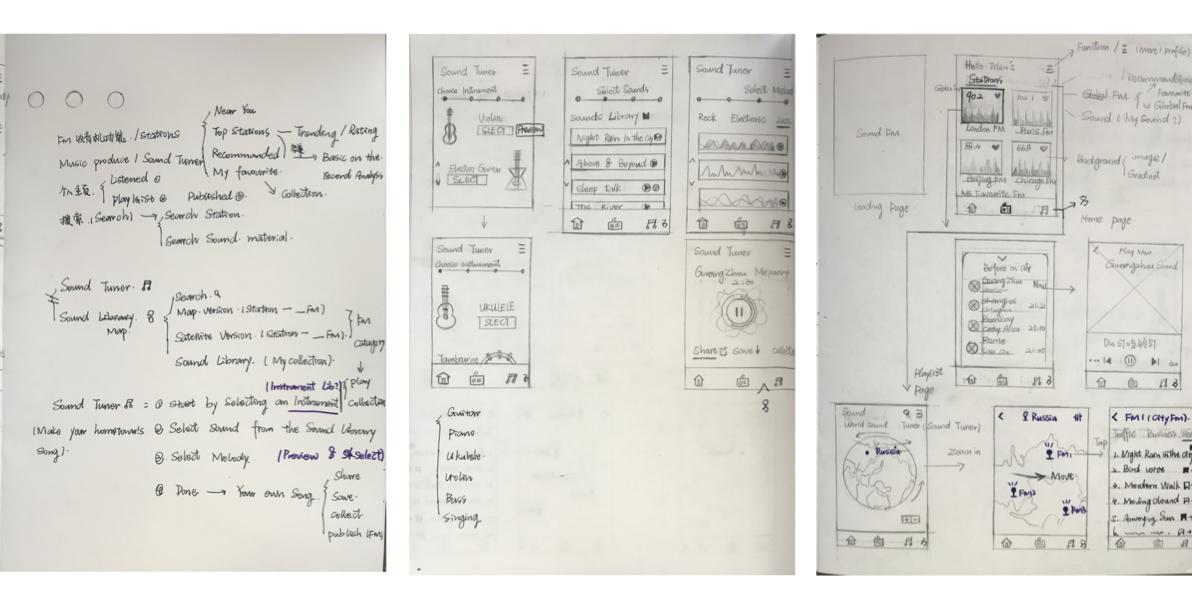 Near You
Fm 收音机功能 / Stations
Top Stations — Trending / Rating
Music produce / Sound Tuner
Recommended → Basic on the
Record Analysis
My favourite
Collection.
个人主页. Listened
Playlist
Published
搜索 (Search) → Search Station.
Search Sound material.
Sound Tuner.
Sound Library.
Map
Search.
Map version (Station - __ Fm)
Satellite Version. (Station - __ Fm).
Fm
Sound Library. (My collection).
(Instrument Lib?)
play
Collection
Sound Tuner = ① Start by Selecting an Instrument
(Make your hometowns
Song).
② Select Sound from the Sound Library
③ Select Melody. (Preview & Select)
④ Done → Your own Song.
Share
Save.
collect
publish (Fm)
Sound Tuner
Choose Instrument
Violin
SLECT
Preview
Electro Guitar
SLECT
Sound Tuner
Choose Instrument
UKULELE
SLECT
Tambourine
Guitar
Piano
Ukulele
Violin
Bass
Singing
Sound Tuner
Select Sounds
Sounds Library
Night Rain in the City
Above & Beyond
Sleep Talk
The River
Sound Tuner
Select Melod
Rock Electronic Jazz
Sound Tuner
GuangZhou Memory
Share Save
Sound Fm
Loading Page
Function / (more / profile)
Stations
90.2
London FM
Paris Fm
88.4
66.8
Beijing FM
Chicago Fm
Global Fm.
Favourite
Global Fm
Sound (My Sound)
Background
image /
Gradinet
Home page
Before on air
Guang Zhou Now
Shanghai
Rome
Playlist
Page
Play Now
Guangzhou Sound
Sound
World Sound Tuner (Sound Tuner)
Russia
Zoom in
Russia
Fm1
Move
Fm2
Fm3
Tap
FM1 (City Fm).
Traffic Business
1. Night Rain in the city
2. Bird voice
3. Mordern Walk
4. Moving cloud
5.